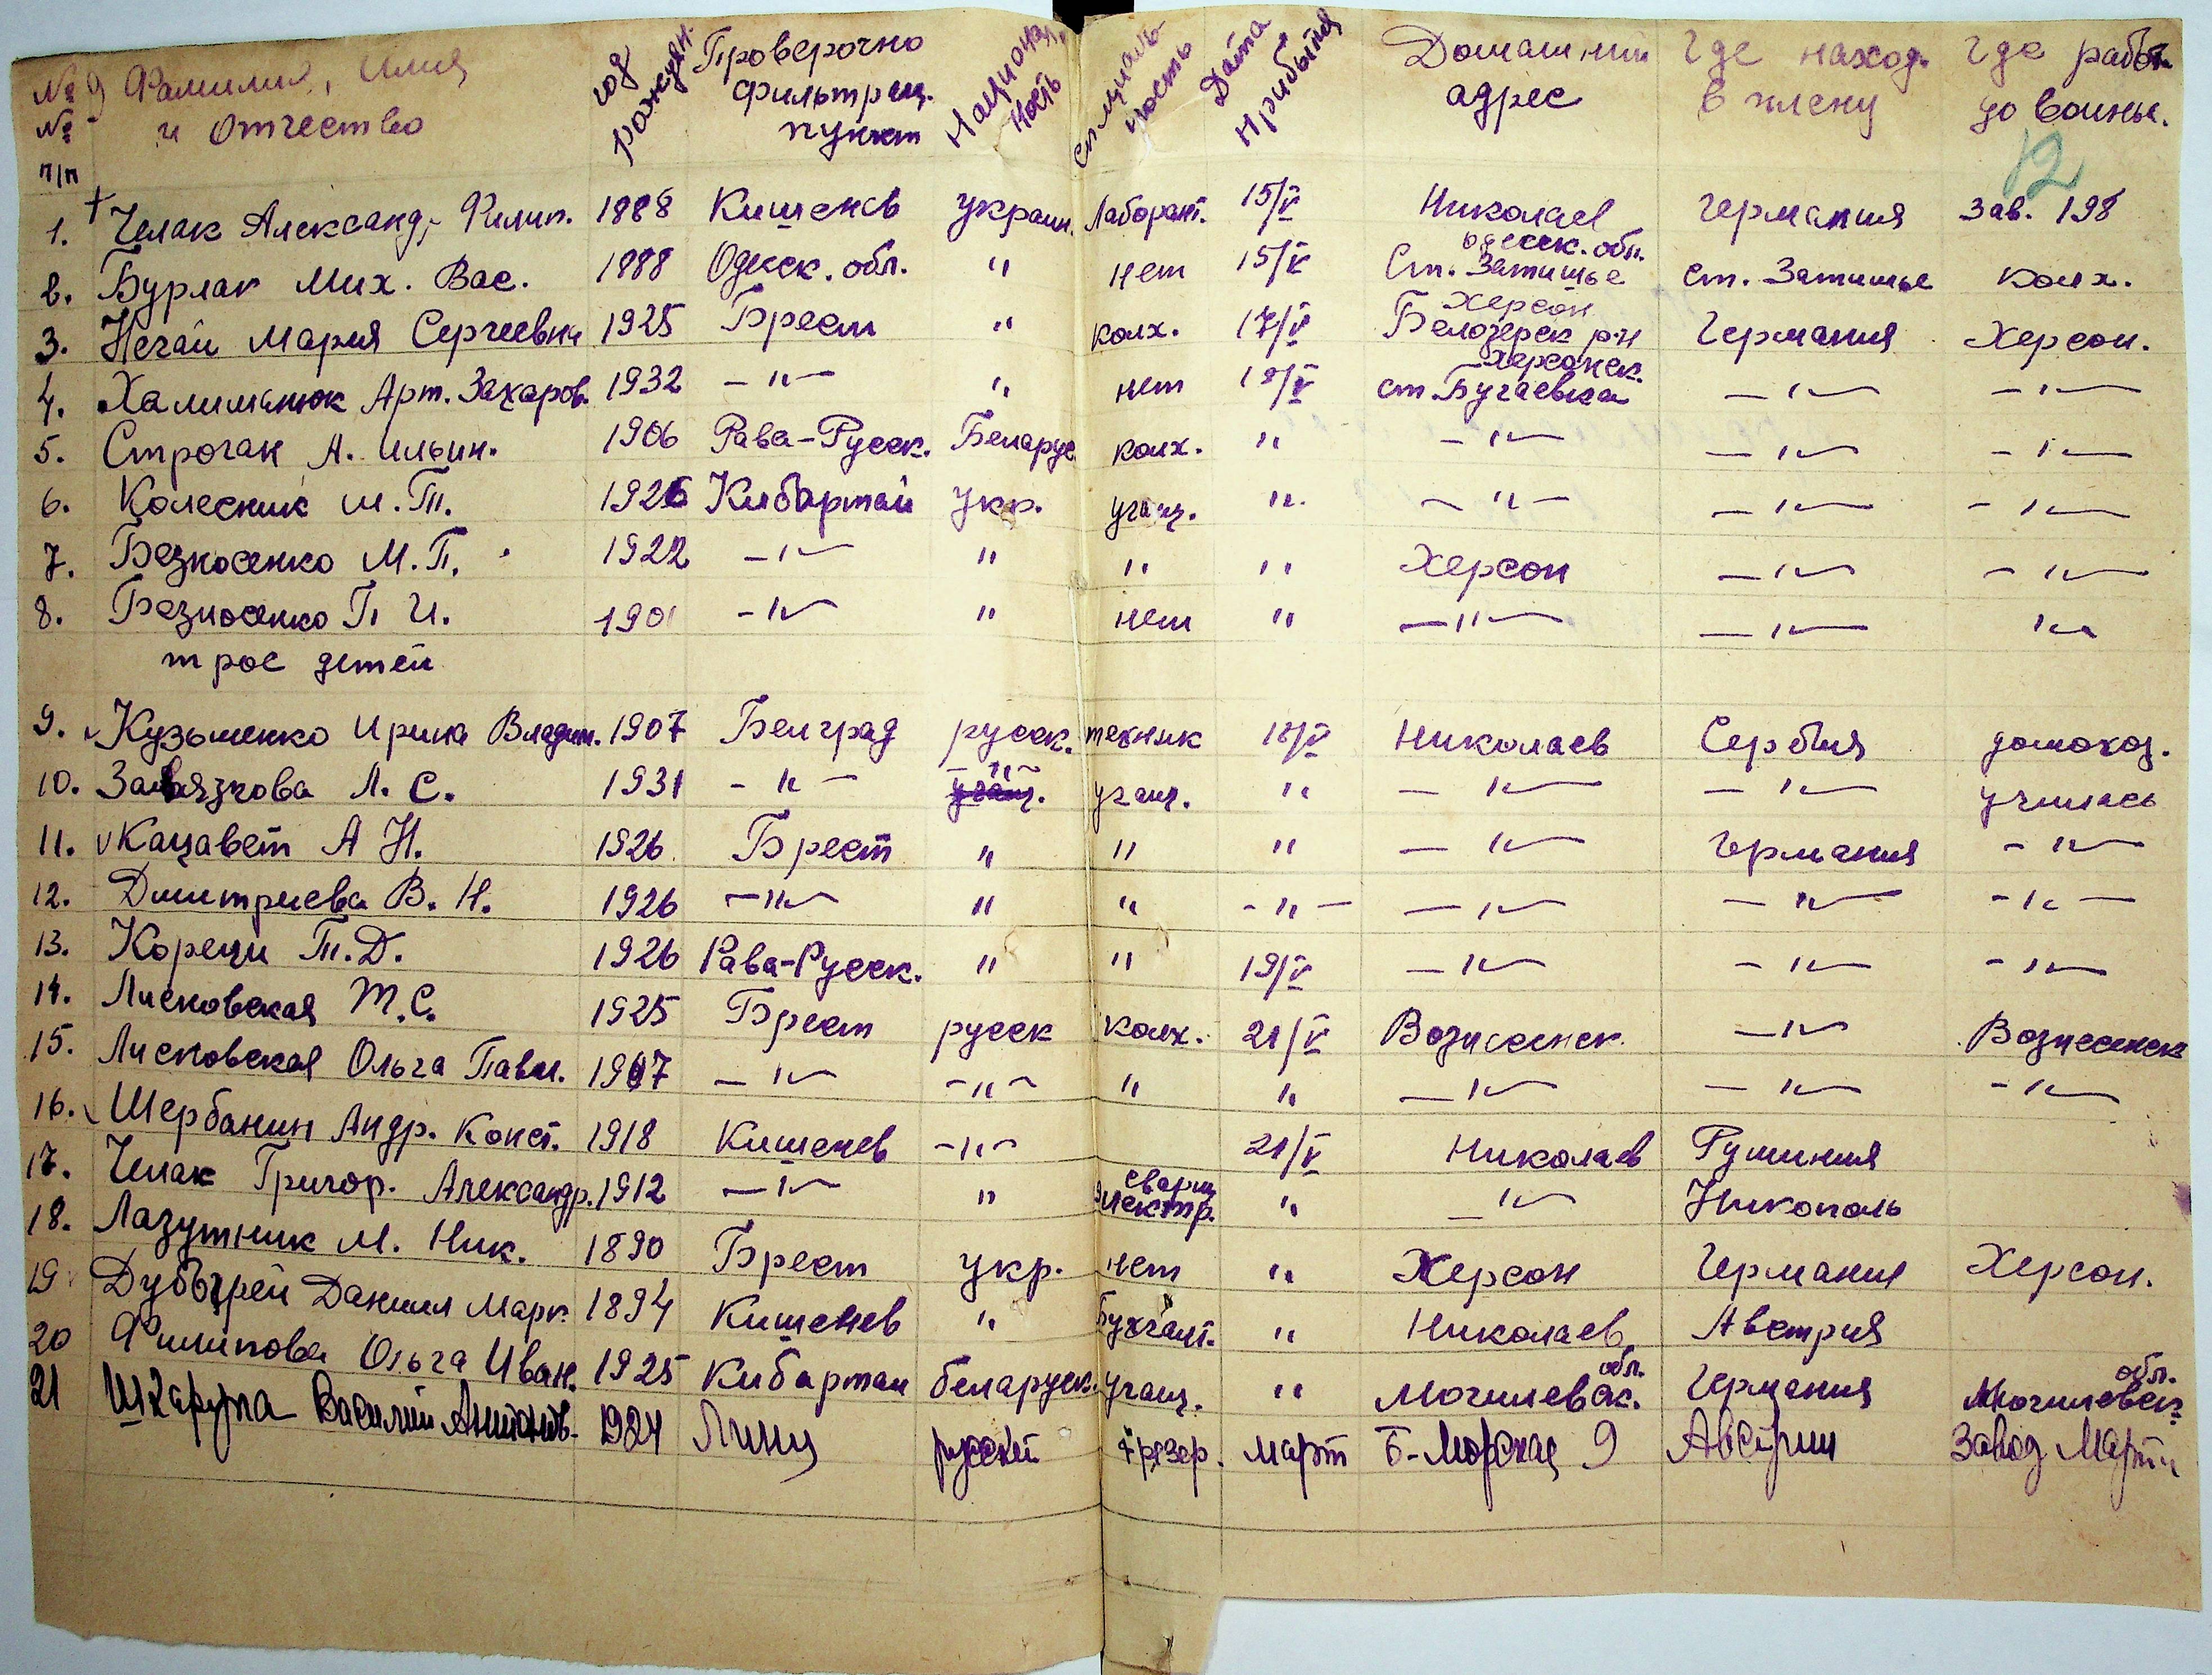 №№ п/п Фамилия, Имя и Отчество год рожден. Проверочно фильтрац. пункт Националь ность специаль ность Дата прибытия Домашний адрес Где наход. в плену Где работ. до войны.
12
1. + Челак Александ, Филип. 1888 Кишенев украин. Лаборант. 15/V Николаев Германия Зав. 198
2. Бурлак Мих. Вас. 1888 Одесск. обл. " нет 15/V Одесск. обл. Ст. Затишье ст. Затишье колх.
3. Нечай Мария Сергеевна 1925 Брест " колх. 17/V Херсон Белозерск р-н Германия Херсон.
4. Халиманюк Арт. Захаров. 1932 —"— " нет 18/V Херсонск. ст. Бугаевка —"— —"—
5. Строган А. Ильин. 1906 Рава-Русск. Беларус. колх. " —"— —"— —"—
6. Колесник М. Т. 1926 Кибартай укр. учащ. " —"— —"— —"—
7. Безносенко М. П. 1922 —"— " " " Херсон —"— —"—
8. Безносенко П. И. 190 —"— " нет " —"— —"— "
трое детей
9. Кузьменко Ирина Владим. 1907 Белград русск. техник 18/V Николаев Сербия домохоз.
10. Завязкова Л. С. 1931 —"— —"— учащ. учащ. " —"— —"— училась
11. v Кацавет А Н. 1926 Брест " " " —"— Германия —"—
12. Дмитриева В. Н. 1926 —"— " " —"— —"— —"— —"—
13. Корещи Т. Д. 1926 Рава-Русск. " " 19/V —"— —"— —"—
14. Лисковская Т. С. 1925 Брест русск колх. 21/V Вознесенск —"— Вознесенск
15. Лисковская Ольга Павл. 1907 —"— —"— " " —"— —"— —"—
16. Шербанин Андр. Конст. 1918 Кишенев —"— 21/V Николаев Румыния
17. Челак Григор. Александр. 1912 —"— " сварщ электр. " —"— Никополь
18. Лазутник М. Ник. 1890 Брест укр. нет " Херсон Германия Херсон.
19 Даниил Марк. 1894 Кишенев " Бухгалт. " Николаев Австрия
20 Филипова Ольга Иван. 1925 Кибартаи беларуск. учащ. " Могилевск. обл. Германия Могилевск. обл.
21 Шкарупа Василий Антонов. 1924 Линц русский фрезер. март Б-Морская 9 Австрии Завод Марти